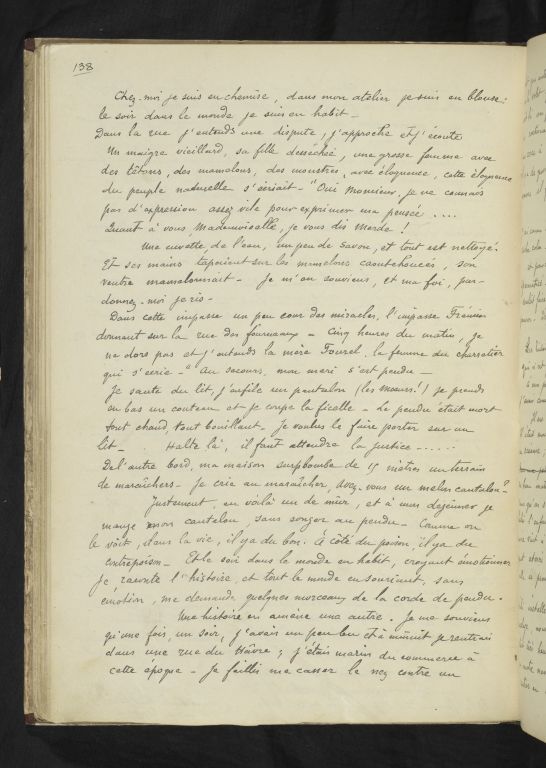 138
Chez-moi je suis en chemise, dans mon atelier je suis en blouse:
le soir dans le monde je suis en habit –
Dans la rue j'entends une dispute, j'approche et j'écoute
Un maigre vieillard, sa fille desséchée, une grosse femme avec
des tétons, des mamelons, des monstres, avec éloquence, cette éloquence
du peuple naturelle s'écriait – "Oui Monsieur, je ne connais
pas d'expression assez vile pour exprimer ma pensée ....
Quant à vous, Mademoiselle, je vous dis Merde!
Une cuvette, de l'eau, un peu de savon, et tout est nettoyé.
Et ses mains tapaient sur les mamelons caoutchoucés, son
ventre mamelonnait – Je m'en souviens, et ma foi, par-
donnez-moi je ris –
Dans cette impasse un peu cour des miracles, l'impasse Frémin
donnant sur la rue des fourneaux – Cinq heures du matin, je
ne dors pas et j'entends la mère Fourel, la femme du charretier
qui s'écrie – "Au secours, mon mari s'est pendu –
Je saute du lit, j'enfile un pantalon (les mœurs!) je prends
en bas un couteau et je coupe la ficelle – Le pendu était mort
tout chaud, tout bouillant. Je voulus le faire porter sur un
lit – Halte là, il faut attendre la justice – ....
De l'autre bord, ma maison surplombe de 15 mètres un terrain
de maraîchers – Je crie au maraîcher, Avez-vous un melon cantalou?–
Justement, en voilà un de mûr, et à mon déjeuner je
mange mon cantalou, sans songer au pendu – Comme on
le voit, dans la vie, il y a du bon. A côté du poison, il y a du
contrepoison – Et le soir dans le monde en habit, croyant émotionner
je raconte l'histoire, et tout le monde en souriant, sans
émotion, me demande quelques morceaux de la corde de pendu.
Une histoire en amène une autre. Je me souviens
qu'une fois, un soir, j'avais un peu bu et à minuit je rentrai
dans une rue du Hâvre; j'étais marin du commerce à
cette époque – Je faillis me casser le nez contre un